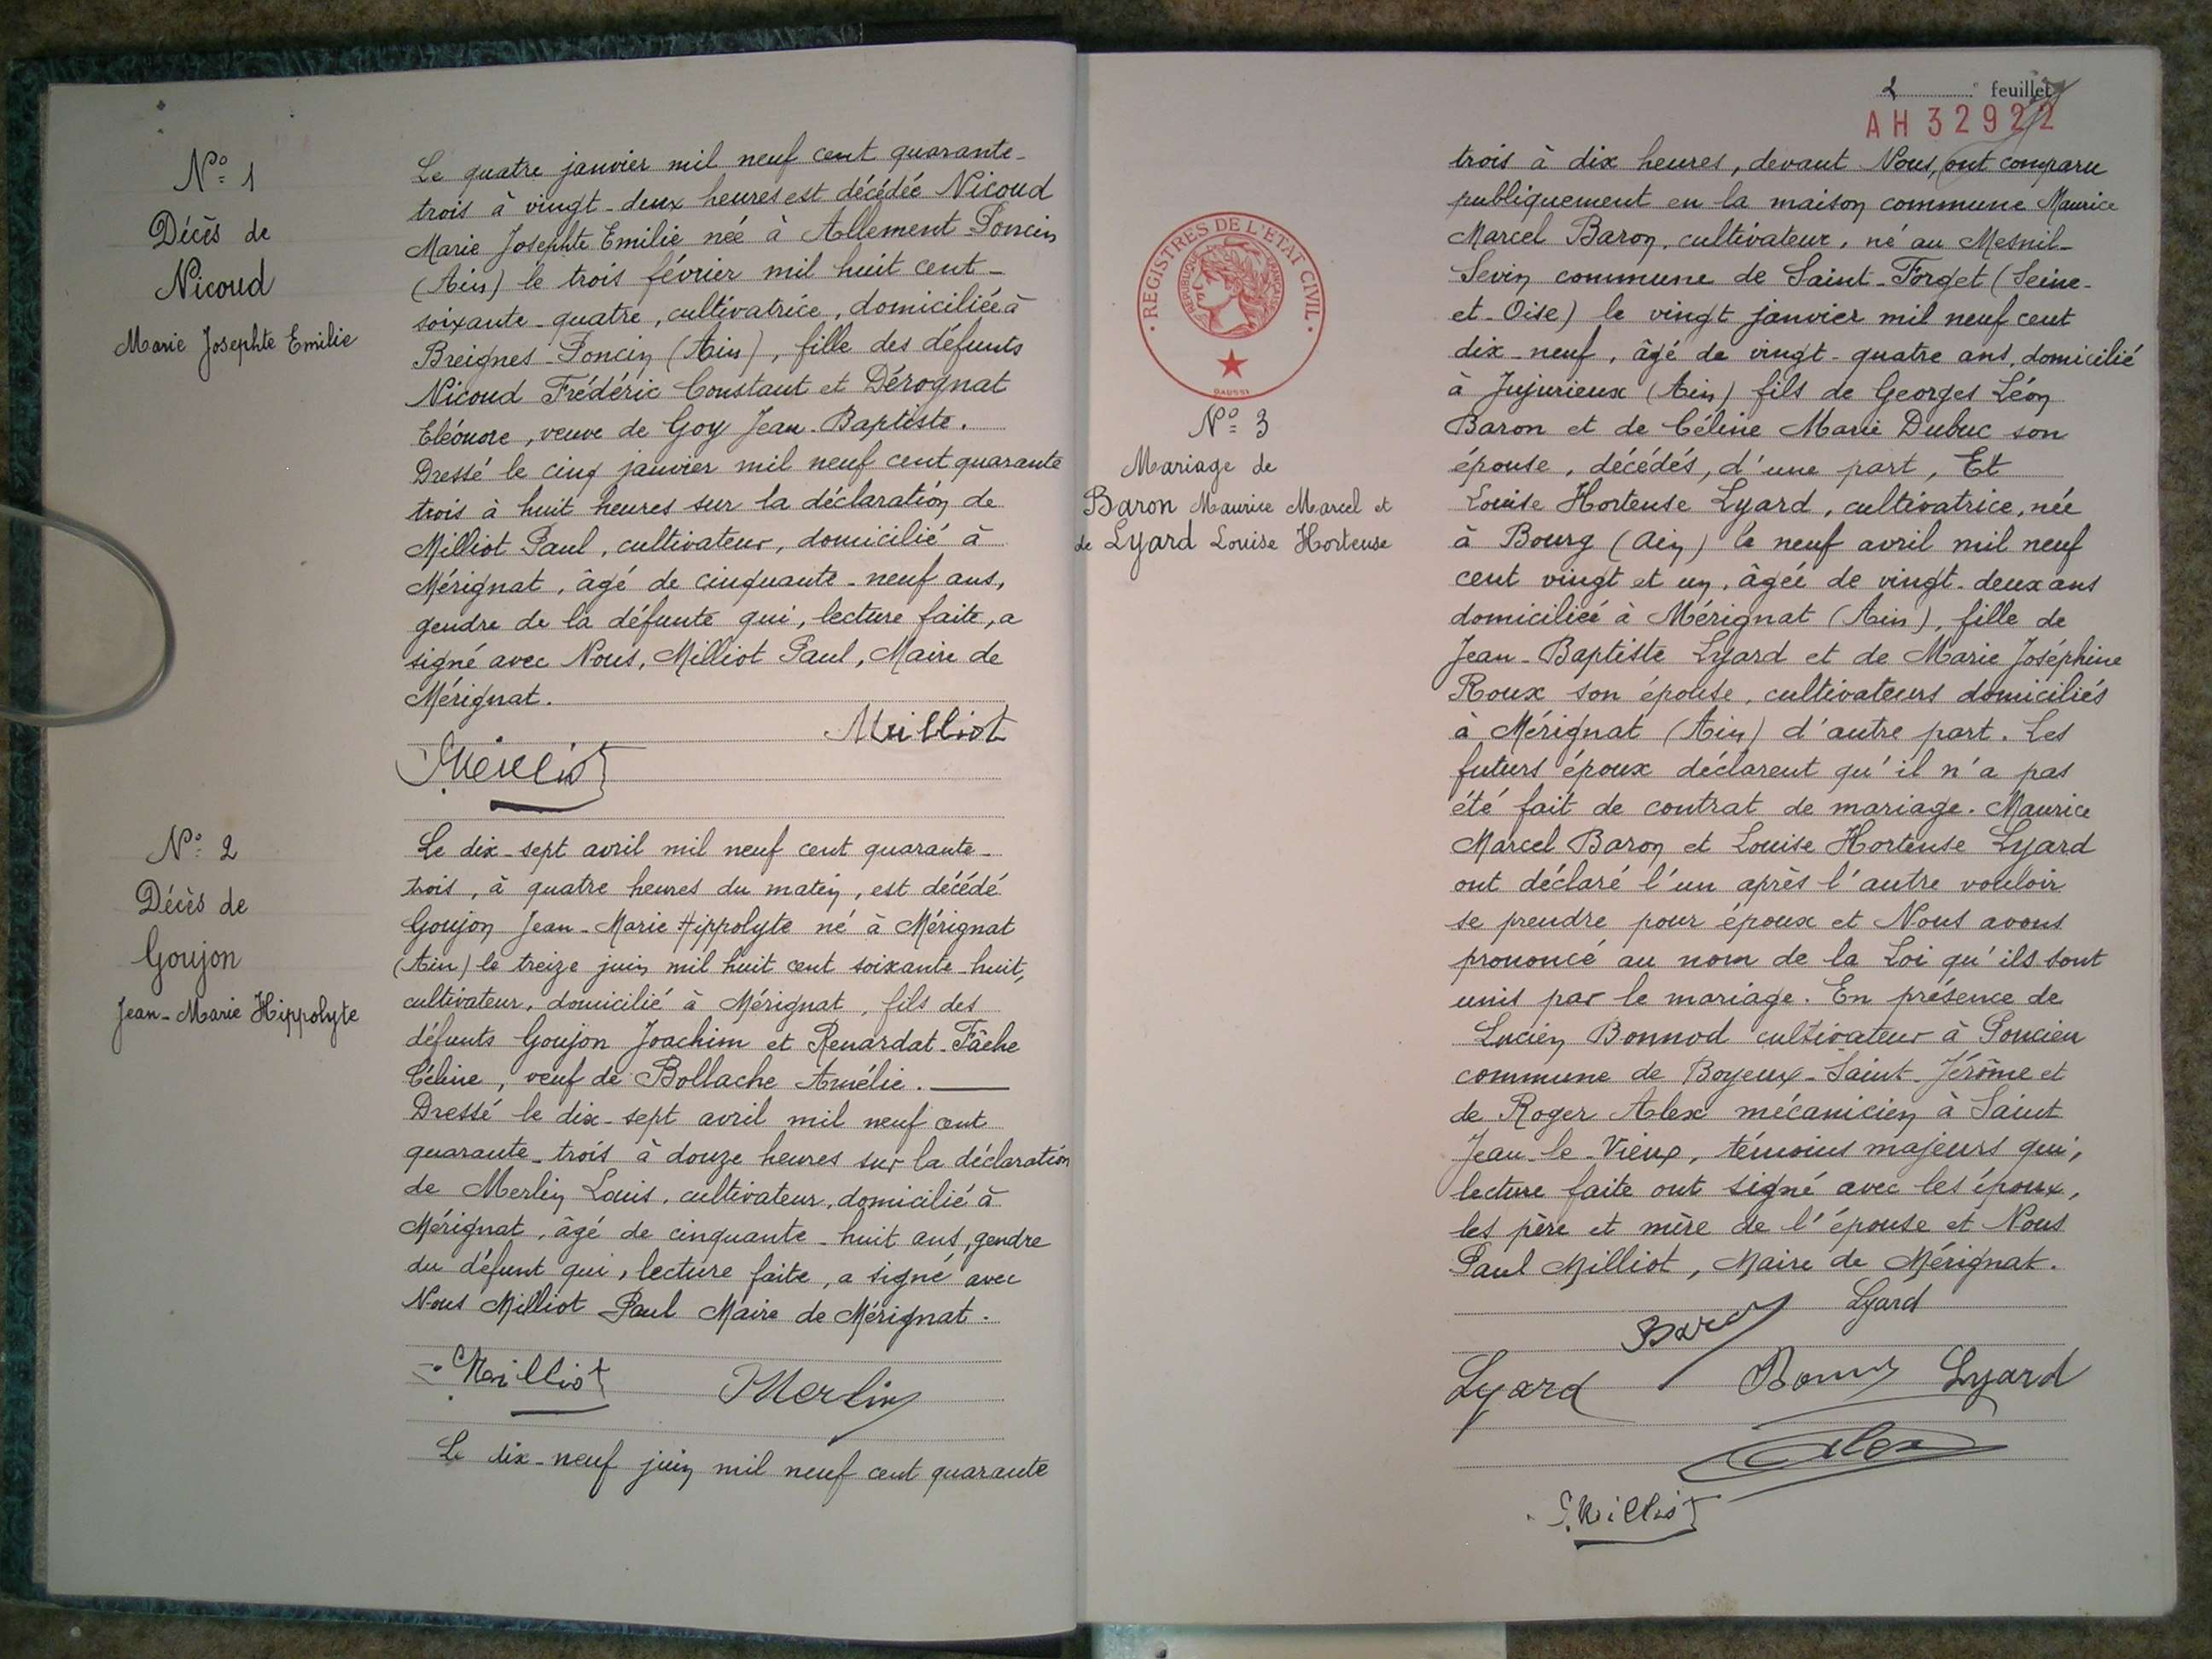 N° 1
Décès de
Nicoud
Marie Josephte Emilie
Le quatre janvier mil neuf cent quarante-
trois à vingt-deux heures est décédée Nicoud
Marie Josephte Emilie née à Allement-Poncin
(Ain) le trois février mil huit cent-
soixante-quatre, cultivatrice, domiciliée à
Breignes-Poncin (Ain), fille des défunts
Nicoud Frédéric Constant et Dérognat
Eléonore, veuve de Goy Jean-Baptiste.
Dressé le cinq janvier mil neuf cent quarante
trois à huit heures sur la déclaration de
Milliot Paul, cultivateur, domicilié à
Mérignat, âgé de cinquante-neuf ans,
gendre de la défunte qui, lecture faite, a
signé avec Nous, Milliot Paul, Maire de
Mérignat.
Milliot
P. Milliot
N° 2
Décès de
Goujon
Jean-Marie Hippolyte
Le dix-sept avril mil neuf cent quarante-
trois, à quatre heures du matin, est décédé
Goujon Jean-Marie Hippolyte né à Mérignat
(Ain) le treize juin mil huit cent soixante-huit,
cultivateur, domicilié à Mérignat, fils des
défunts Goujon Joachim et Renardat-Fâche
Céline, veuf de Bollache Amélie.
Dressé le dix-sept avril mil neuf cent
quarante-trois à douze heures sur la déclaration
de Merlin Louis, cultivateur, domicilié à
Mérignat, âgé de cinquante-huit ans, gendre
du défunt qui, lecture faite, a signé avec
Nous Milliot Paul Maire de Mérignat.
Milliot Merlin
Le dix-neuf juin mil neuf cent quarante
2e feuillet
AH 32922
REGISTRES DE L'ETAT CIVIL
REPUBLIQUE FRANÇAISE
N° 3
Mariage de
Baron Maurice Marcel et
de Lyard Louise Hortense
trois à dix heures, devant Nous, ont comparu
publiquement en la maison commune Maurice
Marcel Baron, cultivateur, né au Mesnil-
Sevin commune de Saint-Forget (Seine-
et-Oise) le vingt janvier mil neuf cent
dix-neuf, âgé de vingt-quatre ans, domicilié
à Jujurieux (Ain) fils de Georges Léon
Baron et de Céline Marie Dubuc son
épouse, décédés, d'une part, Et
Louise Hortense Lyard, cultivatrice, née
à Bourg (Ain) le neuf avril mil neuf
cent vingt et un, âgée de vingt-deux ans
domiciliée à Mérignat (Ain), fille de
Jean-Baptiste Lyard et de Marie Joséphine
Roux son épouse, cultivateurs domiciliés
à Mérignat (Ain) d'autre part. Les
futurs époux déclarent qu'il n'a pas
été fait de contrat de mariage. Maurice
Marcel Baron et Louise Hortense Lyard
ont déclaré l'un après l'autre vouloir
se prendre pour époux et Nous avons
prononcé au nom de la Loi qu'ils sont
unis par le mariage. En présence de
Lucien Bonnod cultivateur à Poncieu
commune de Boyeux-Saint-Jérôme et
de Roger Alex mécanicien à Saint
Jean-le-Vieux, témoins majeurs qui,
lecture faite ont signé avec les époux,
les père et mère de l'épouse et Nous
Paul Milliot, Maire de Mérignat.
Baron Lyard
Lyard Lyard
Alex
P. Milliot